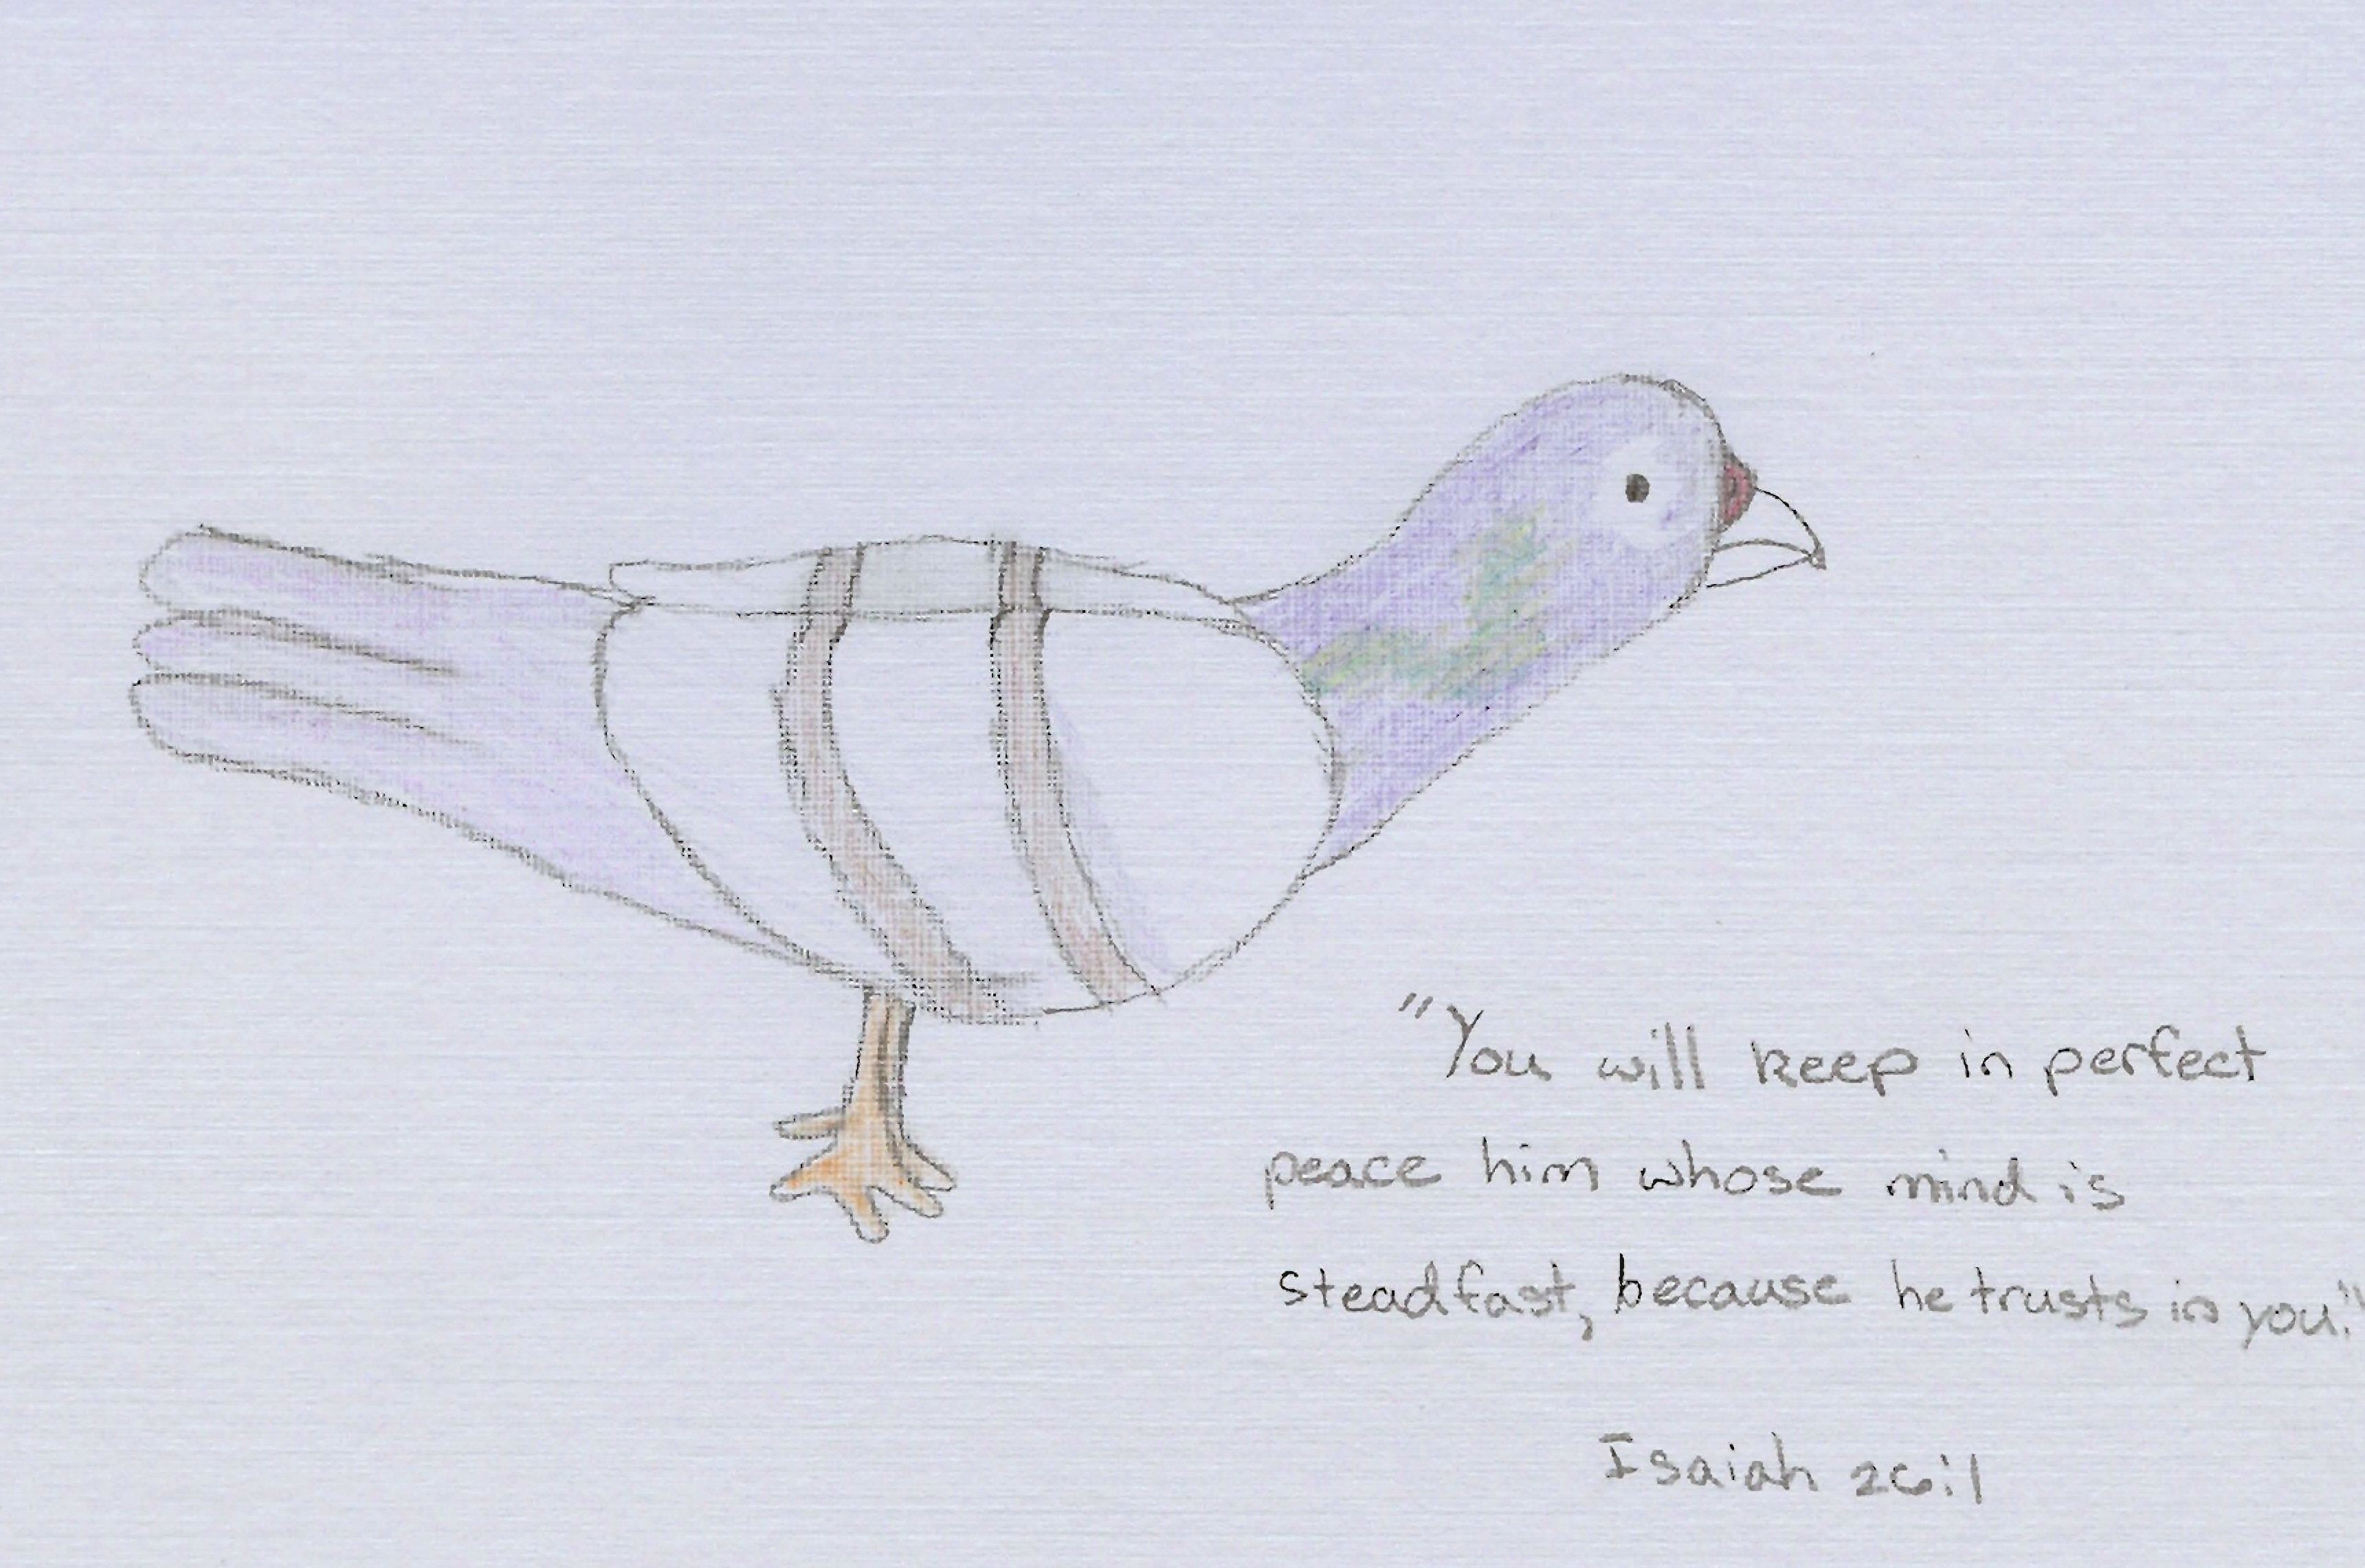 "You will keep in perfect
peace him whose mind is
steadfast, because he trusts in you."
Isaiah 26:1